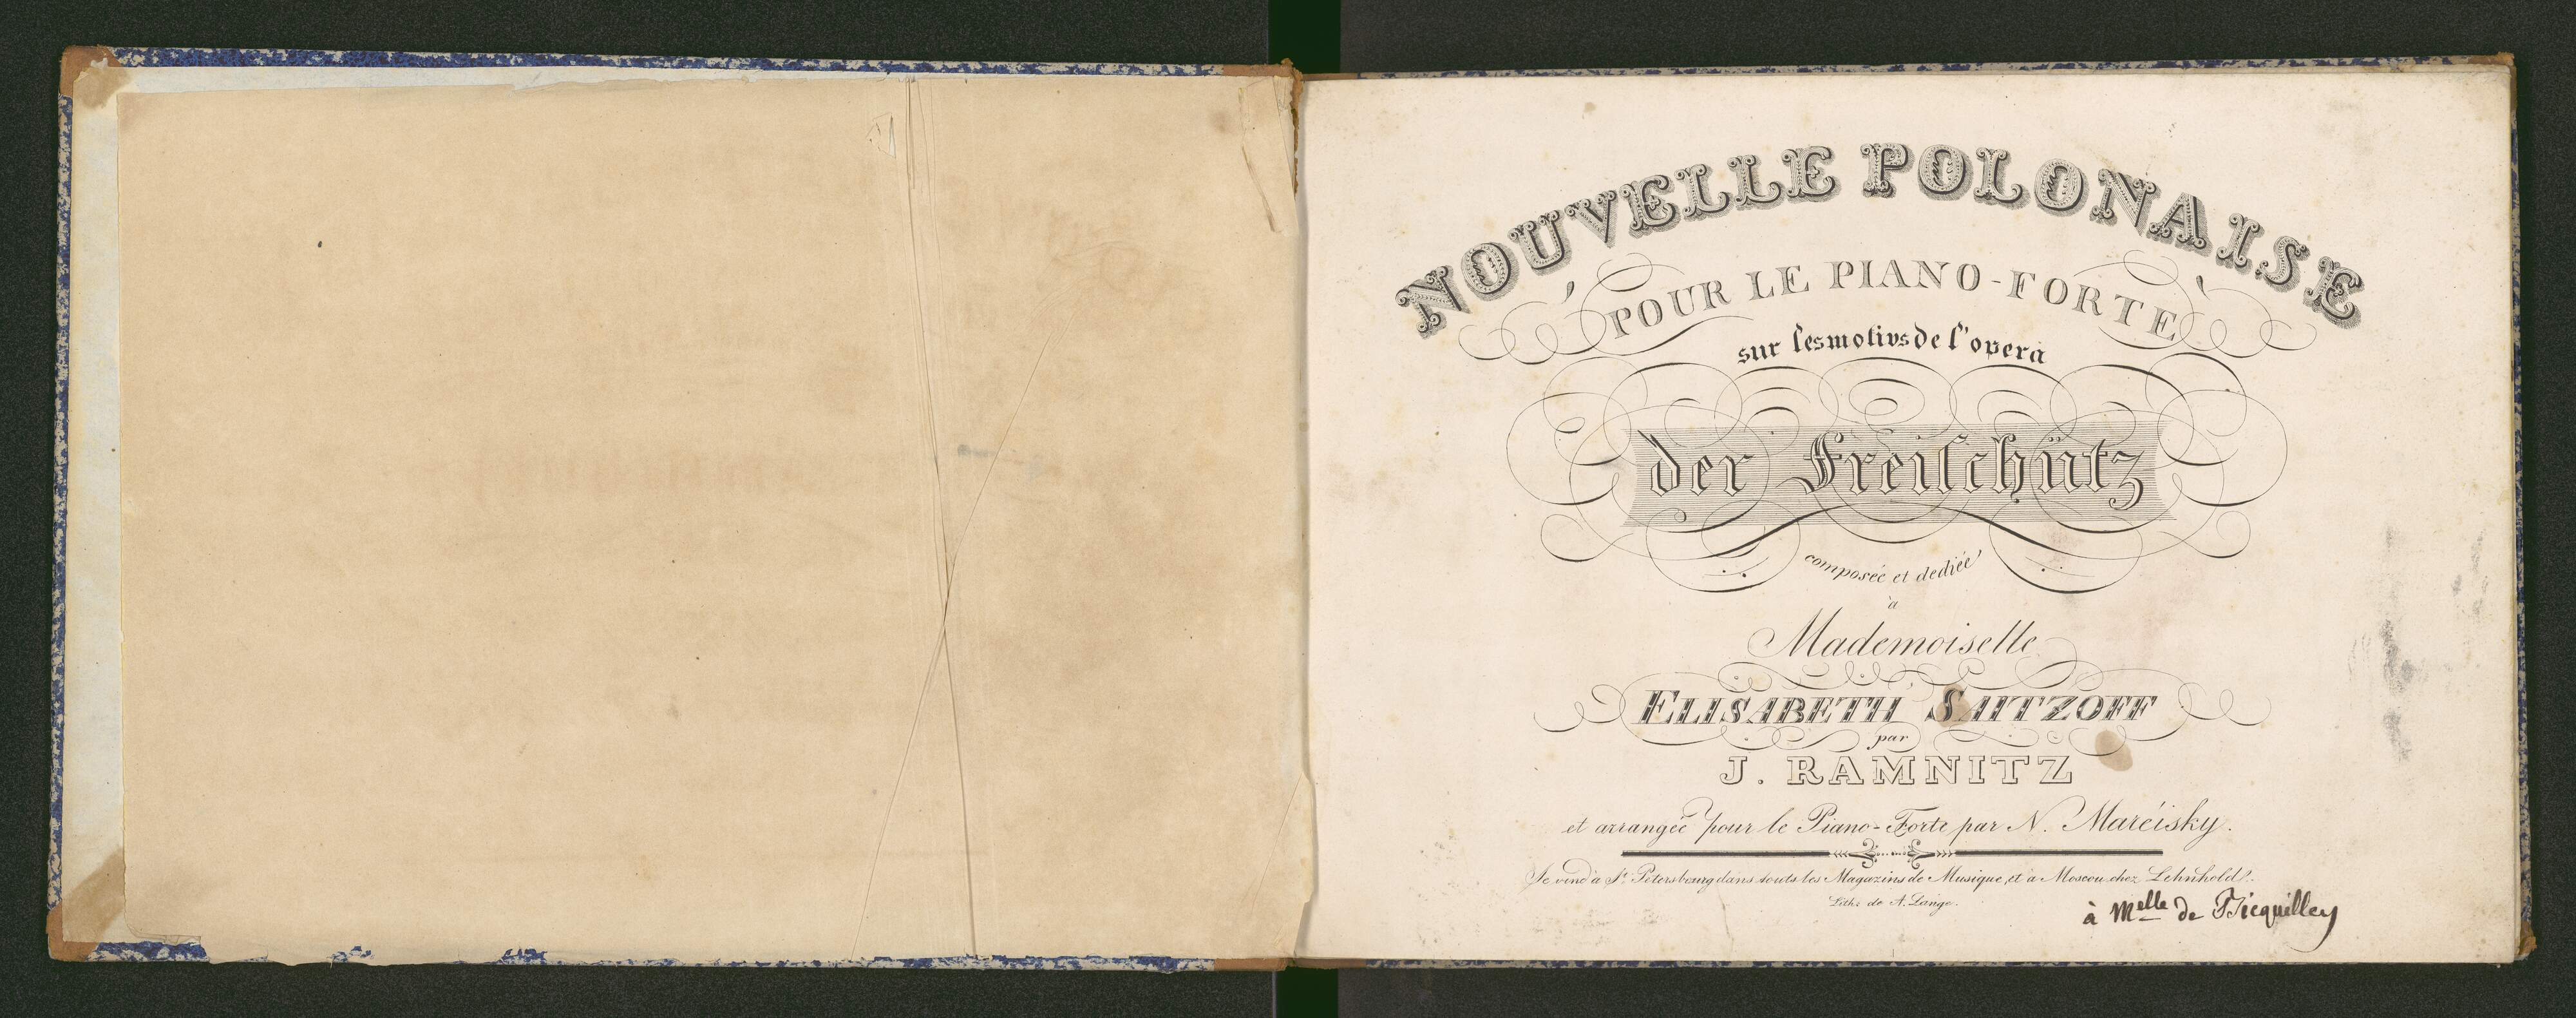 NOUVELLE POLONAISE
POUR LE PIANO-FORTE
sur les motivs de l'opera
der Freiſchütz
composée et dediée
à
Mademoiselle
ELISABETH SAITZOFF
par
J. RAMNITZ
et arrangée pour le Piano-Forte par N. Maréisky.
Se vend à St. Petersbourg dans touts les Magazins de Musique, et à Moscou chez Lehnhold.
Lith: de A. Lange.
à Melle de Ficquilley